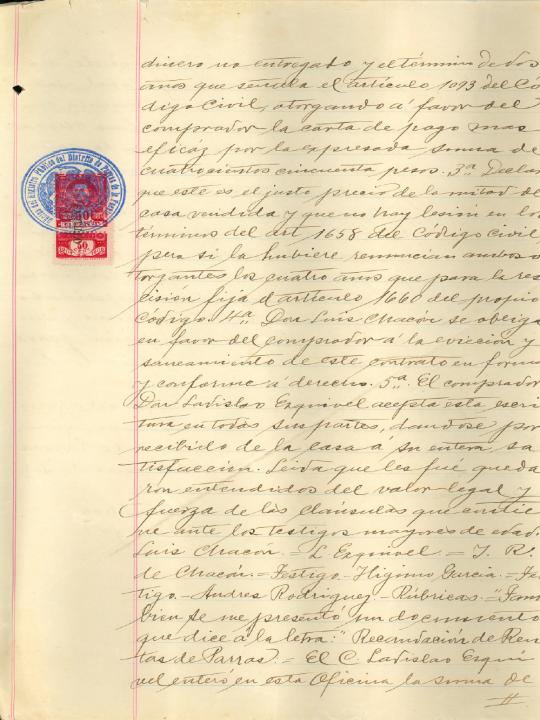 dinero no entregado y el término de dos
años que señala el artículo 1093 del Có
digo Civil, otorgando á favor del
comprador la carta de pago mas
eficáz por la expresada suma de
cuatrocientos cincuenta pesos. 3ª Declaran
que este es el justo precio de la mitad de
casa vendida y que no hay lesión en los
términos del art 1658 del Código Civil
pero si la hubiere renuncian ambos o
torgantes los cuatro años que para la res
cisión fija el artículo 1660 del propio
Código. 4ª Don Luis Chacón se obliga
en favor del comprador á la evicción y
saneamiento de este contrato en forma
y conforme á derecho. 5ª El comprador
Don Ladislao Esquivel acepta esta escri
tura en todas sus partes, dandose por
recibido de la casa á su entera sa
tisfacción. Leida que les fué queda
ron entendidos del valor legal y
fuerza de las cláusulas que contie
ne ante los testigos mayores de edad.
Luis Chacón. = L Esquivel. = J. R.
de Chacón. = Testigo. - Higinio Garcia. = Tes
tigo. - Andres Rodriguez. - Rúbricas. = "Tam
bien se me presentó un documento
que dice á la letra: "Recaudación de Ren
tas de Parras. = El C. Ladislao Esquí
vel enteró en esta Oficina la suma de
50
50